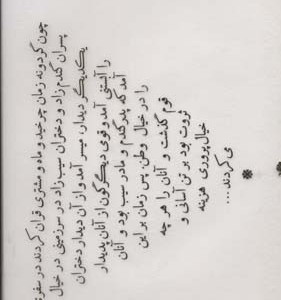 چون گردونه زمان چرخید و ماه و مشتری قران کردند در سفر
پسران گندم‌زاد و دختران سیب‌زاد در سرزمینی در خیال
یکدیگر دیدار، میسر آمد و از آن دیدار دختران
را آبستنی آمد و قومی دیگرگون از آنان پدیدار
آمد که پدر گندم و مادر سیب بود و آنان
را در خیال وطن. پس زمان بر این
قوم گذشت و آنان را هر چه
ثروت بود بر تن آسانی و
خیال پروری هزینه
می کردند...